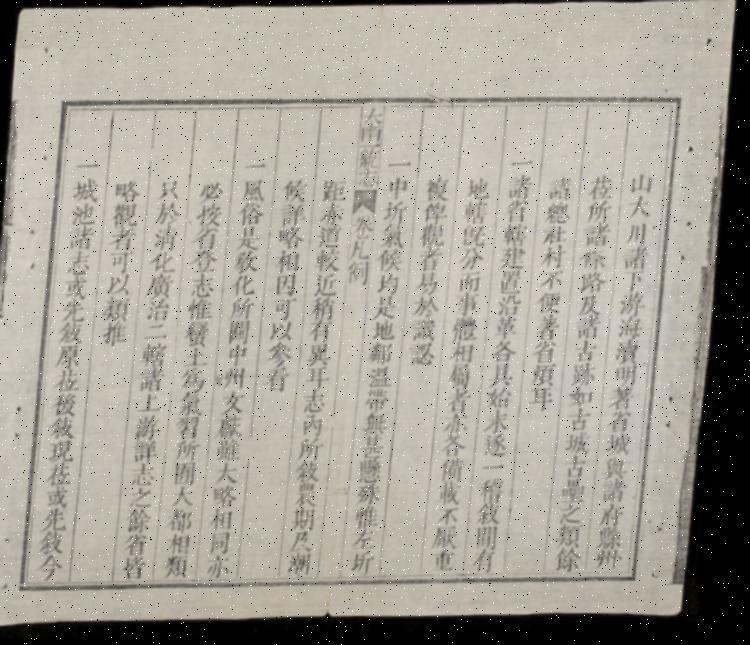 山大川諸下游海濱明著省城與諸府縣州
莅所諸條路及諸古跡如古城古壘之類餘
諸總社村不便著省煩耳
一諸省轄建置沿革各具始末逐一俻敘間有
地轄既分而事體相關者亦各備載不厭重
複俾觀者易於識認
一中圻氣候均是地鄰溫帶無甚懸殊惟左圻
大南一統志 卷凡例 二
距赤道較近稍有異耳志內所敘農期及潮
候詳略相因可以參看
一風俗是教化所關中州文獻雖大略相同亦
必按省登志惟蠻土爲氣習所囿人都相類
只於清化廣治二轄諸上游詳志之餘省皆
略觀者可以類推
一城池諸志或先敘原莅後敘現莅或先敘今